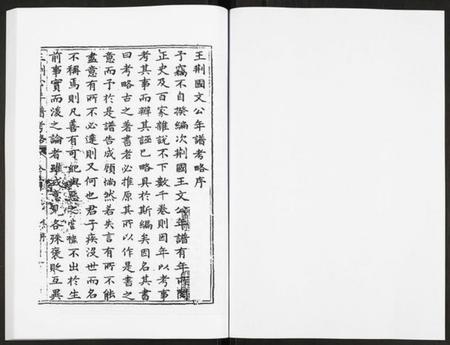 王荊國文公年譜考略序
予竊不自揆編次荊國王文公年譜有年所閱
正史及百家雜說不下數千卷則因年以考事
考其事而辯其誣已略具於斯編矣因名其書
曰考略古之著書者必推原其所以作是書之
意而予於是譜告成顧惴然若失言有所不能
盡意有所不必達則又何也君子疾沒世而名
不稱焉則凡善有可紀與惡之當襮不出於生
前事實而後之論者雖或意見各殊褒貶互異